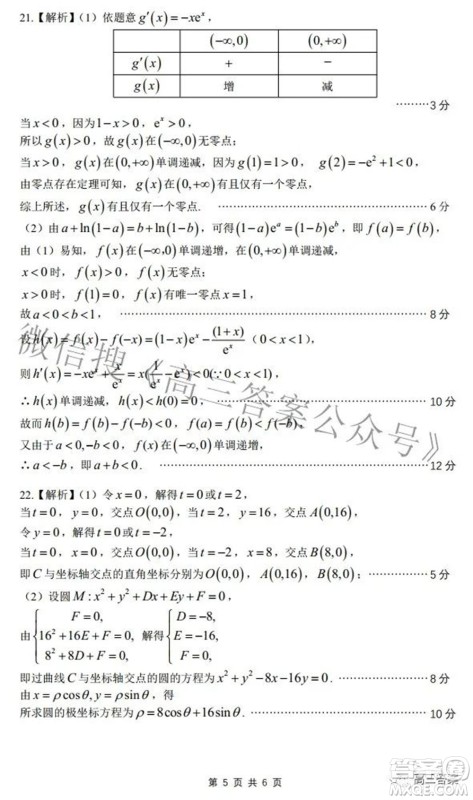 21.【解析】（1）依题意 g′(x)=−xeˣ，
(−∞,0) (0,+∞)
g′(x) + −
g(x) 增 减
………3分
当 x<0，因为1−x>0，eˣ>0，
所以 g(x)>0，故 g(x) 在(−∞,0)无零点；
当 x>0，g(x) 在(0,+∞)单调递减，因为 g(1)=1>0， g(2)=−e²+1<0，
由零点存在定理可知，g(x) 有且仅有一个零点；
综上所述，g(x) 有且仅有一个零点. ………………6分
（2）由 a+ln(1−a)=b+ln(1−b)，可得(1−a)eᵃ=(1−b)eᵇ，即 f(a)=f(b)，
由（1）易知，f(x) 在(−∞,0)单调递增，在(0,+∞)单调递减，
x<0 时，f(x)>0，f(x) 无零点；
x>0 时，f(1)=0，f(x) 有唯一零点 x=1，
故 a<0<b<1， ………………8分
设h(x)=f(x)−f(−x)=(1−x)eˣ−(1+x)/eˣ（0<x<1），
则 h′(x)=−xeˣ+x/eˣ=x(1/eˣ−eˣ)<0(∵0<x<1)，
∴h(x) 单调递减，h(x)<h(0)=0. ………………10分
故而 h(b)=f(b)−f(−b)<0，f(a)=f(b)<f(−b)，
又由于 a<0,−b<0，f(x) 在(−∞,0)单调递增，
∴a<−b，即 a+b<0. ………………12分
22.【解析】（1）令 x=0，解得 t=0或 t=2，
当 t=0，y=0，交点 O(0,0)，当 t=2，y=16，交点 A(0,16)，
令 y=0，解得 t=0或 t=−2，
当 t=0，x=0，交点 O(0,0)，当 t=−2，x=8，交点 B(8,0)，
即 C 与坐标轴交点的直角坐标分别为 O(0,0)，A(0,16)，B(8,0)；………………5分
（2）设圆 M:x²+y²+Dx+Ey+F=0，
由{F=0, 16²+16E+F=0, 8²+8D+F=0, 解得{D=−8, E=−16, F=0,
即过曲线 C 与坐标轴交点的圆的方程为 x²+y²−8x−16y=0. ………………8分
由 x=ρcosθ,y=ρsinθ，得
所求圆的极坐标方程为 ρ=8cosθ+16sinθ. ………………10分
第 5 页 共 6 页
微信搜《高三答案公众号》
高三答案